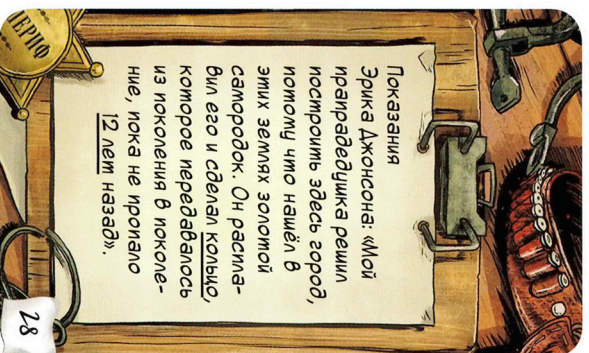 Показания
Эрика Джонсона: «Мой
прапрадедушка решил
построить здесь город,
потому что нашёл в
этих землях золотой
самородок. Он распла-
вил его и сделал кольцо,
которое передавалось
из поколения в поколе-
ние, пока не пропало
12 лет назад».
28